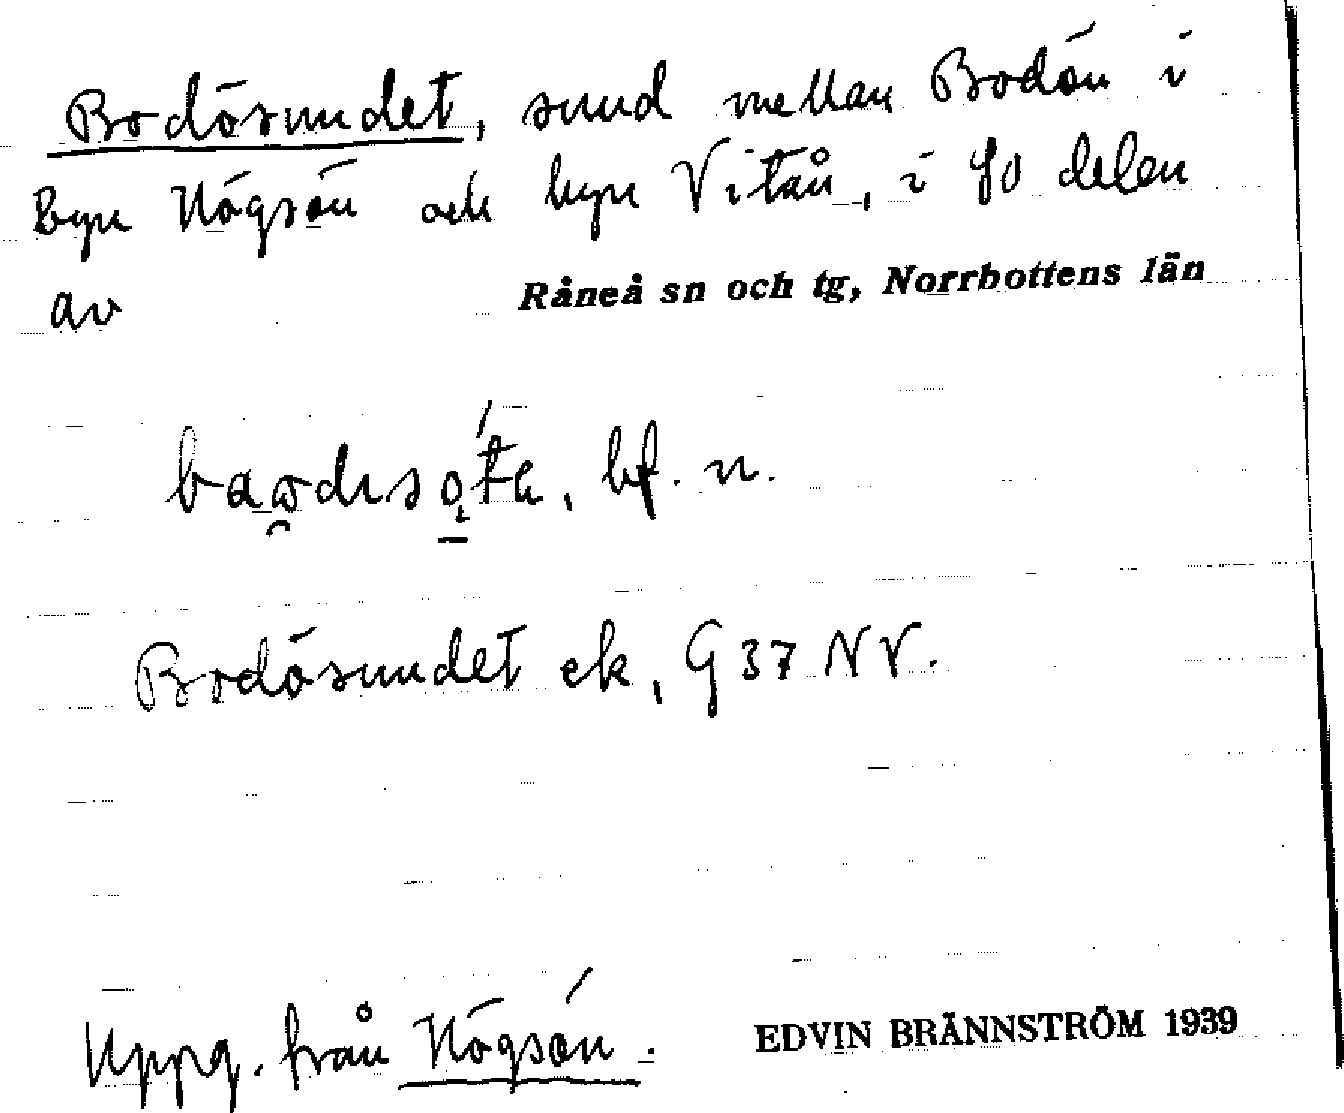 Bodösundet, sund mellan Bodön i
byn Högsön och byn Vitån, i SO delen
av Råneå sn och tg, Norrbottens län
bf. n.
Bodösundet ek, G 37 NV.
Uppg. från Högsön. EDVIN BRÄNNSTRÖM 1939